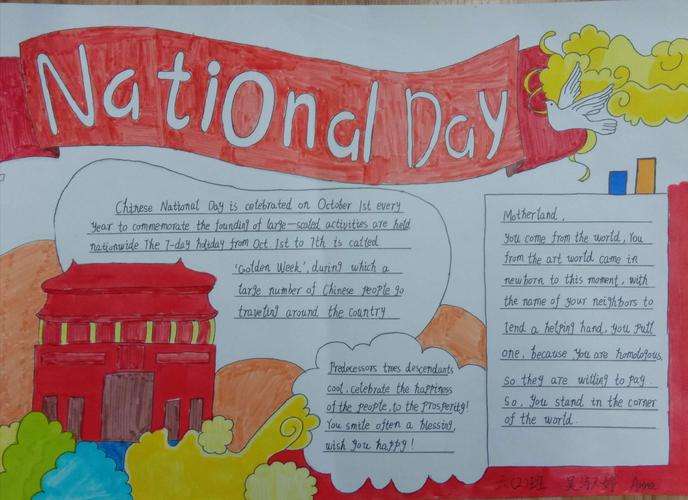 National Day
Chinese National Day is celebrated on October 1st every
year to commemorate the founding of large-scaled activities are held
nationwide The 7-day holiday from Oct 1st to 7th is called
'Golden Week', during which a
large number of Chinese people go
traveling around the country
Predecessors trees descendants
cool, celebrate the happiness
of the people, to the prosperity!
You smile often a blessing,
wish you happy!
Motherland,
you come from the world, You
from the art world came in
newborn to this moment, with
the name of your neighbors to
lend a helping hand, you pull
one, because you are homologous,
so they are willing to pay
So, you stand in the corner
of the world.
六(2)班 Anna